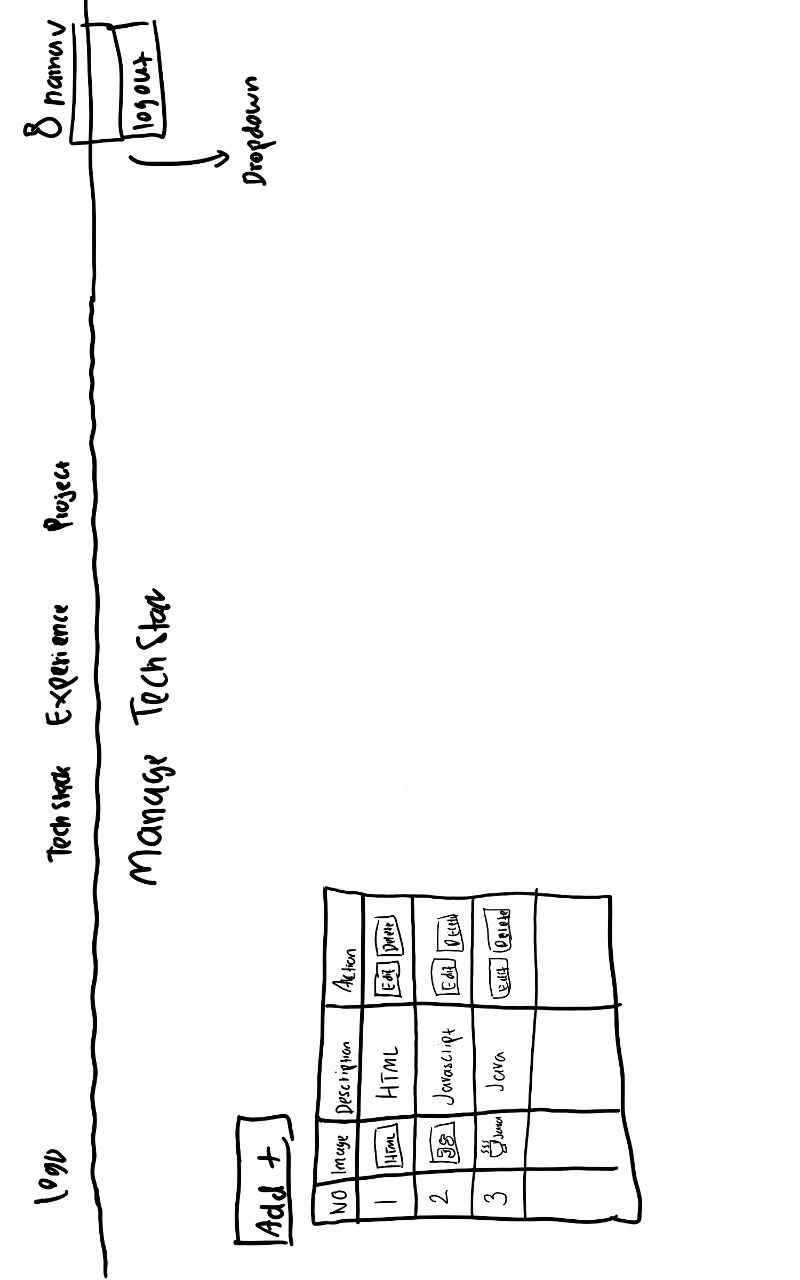 logo Tech Stack Experience Project nama v
logout
Manage Tech Stack
Dropdown
Add +
NO Image Description Action
1 HTML HTML Edit Delete
2 JS Javascript Edit Delete
3 Java Java Edit Delete